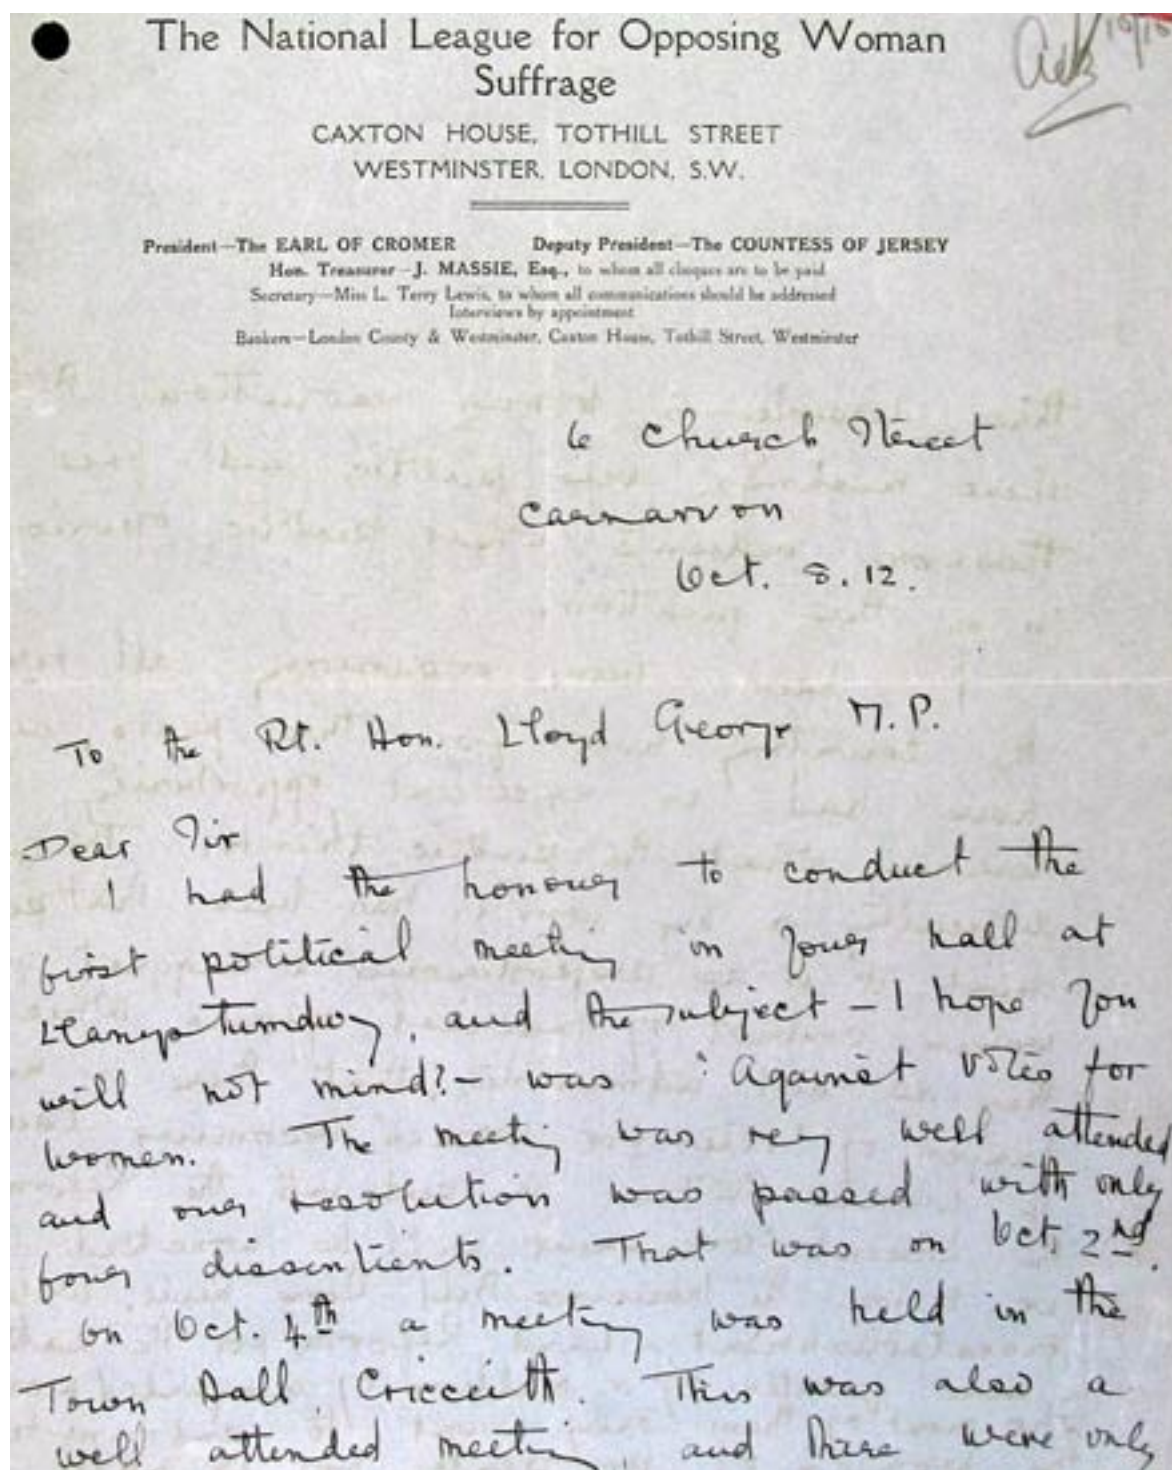 The National League for Opposing Woman
Suffrage
CAXTON HOUSE, TOTHILL STREET
WESTMINSTER, LONDON, S.W.
President—The EARL OF CROMER Deputy President—The COUNTESS OF JERSEY
Hon. Treasurer—J. MASSIE, Esq., to whom all cheques are to be paid
Secretary—Miss L. Terry Lewis, to whom all communications should be addressed
Interviews by appointment
Bankers—London County & Westminster, Caxton House, Tothill Street, Westminster
6 Church Street
Carnarvon
Oct. 8. 12.
To the Rt. Hon. Lloyd George M.P.
Dear Sir
I had the honour to conduct the
first political meeting in your hall at
Llanystumdwy, and the subject – I hope you
will not mind? – was : Against Votes for
women. The meeting was very well attended
and our resolution was passed with only
four dissentients. That was on Oct. 2nd.
On Oct. 4th a meeting was held in the
Town Hall, Criccieth. This was also a
well attended meeting, and there were only